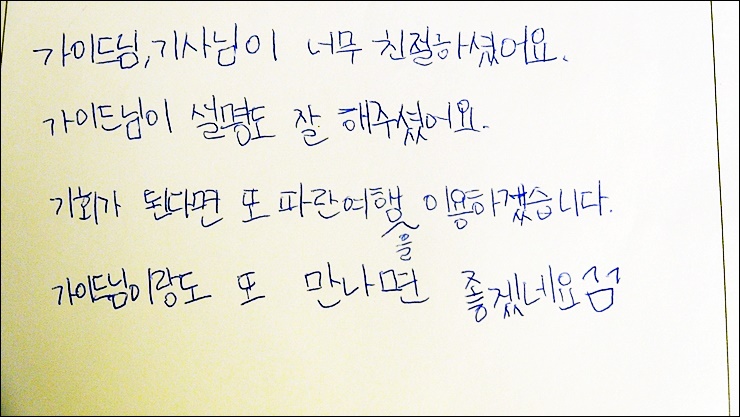 가이드님, 기사님이 너무 친절하셨어요.
가이드님이 설명도 잘 해주셨어요.
기회가 된다면 또 파란여행을 이용하겠습니다.
가이드님이랑도 또 만나면 좋겠네요